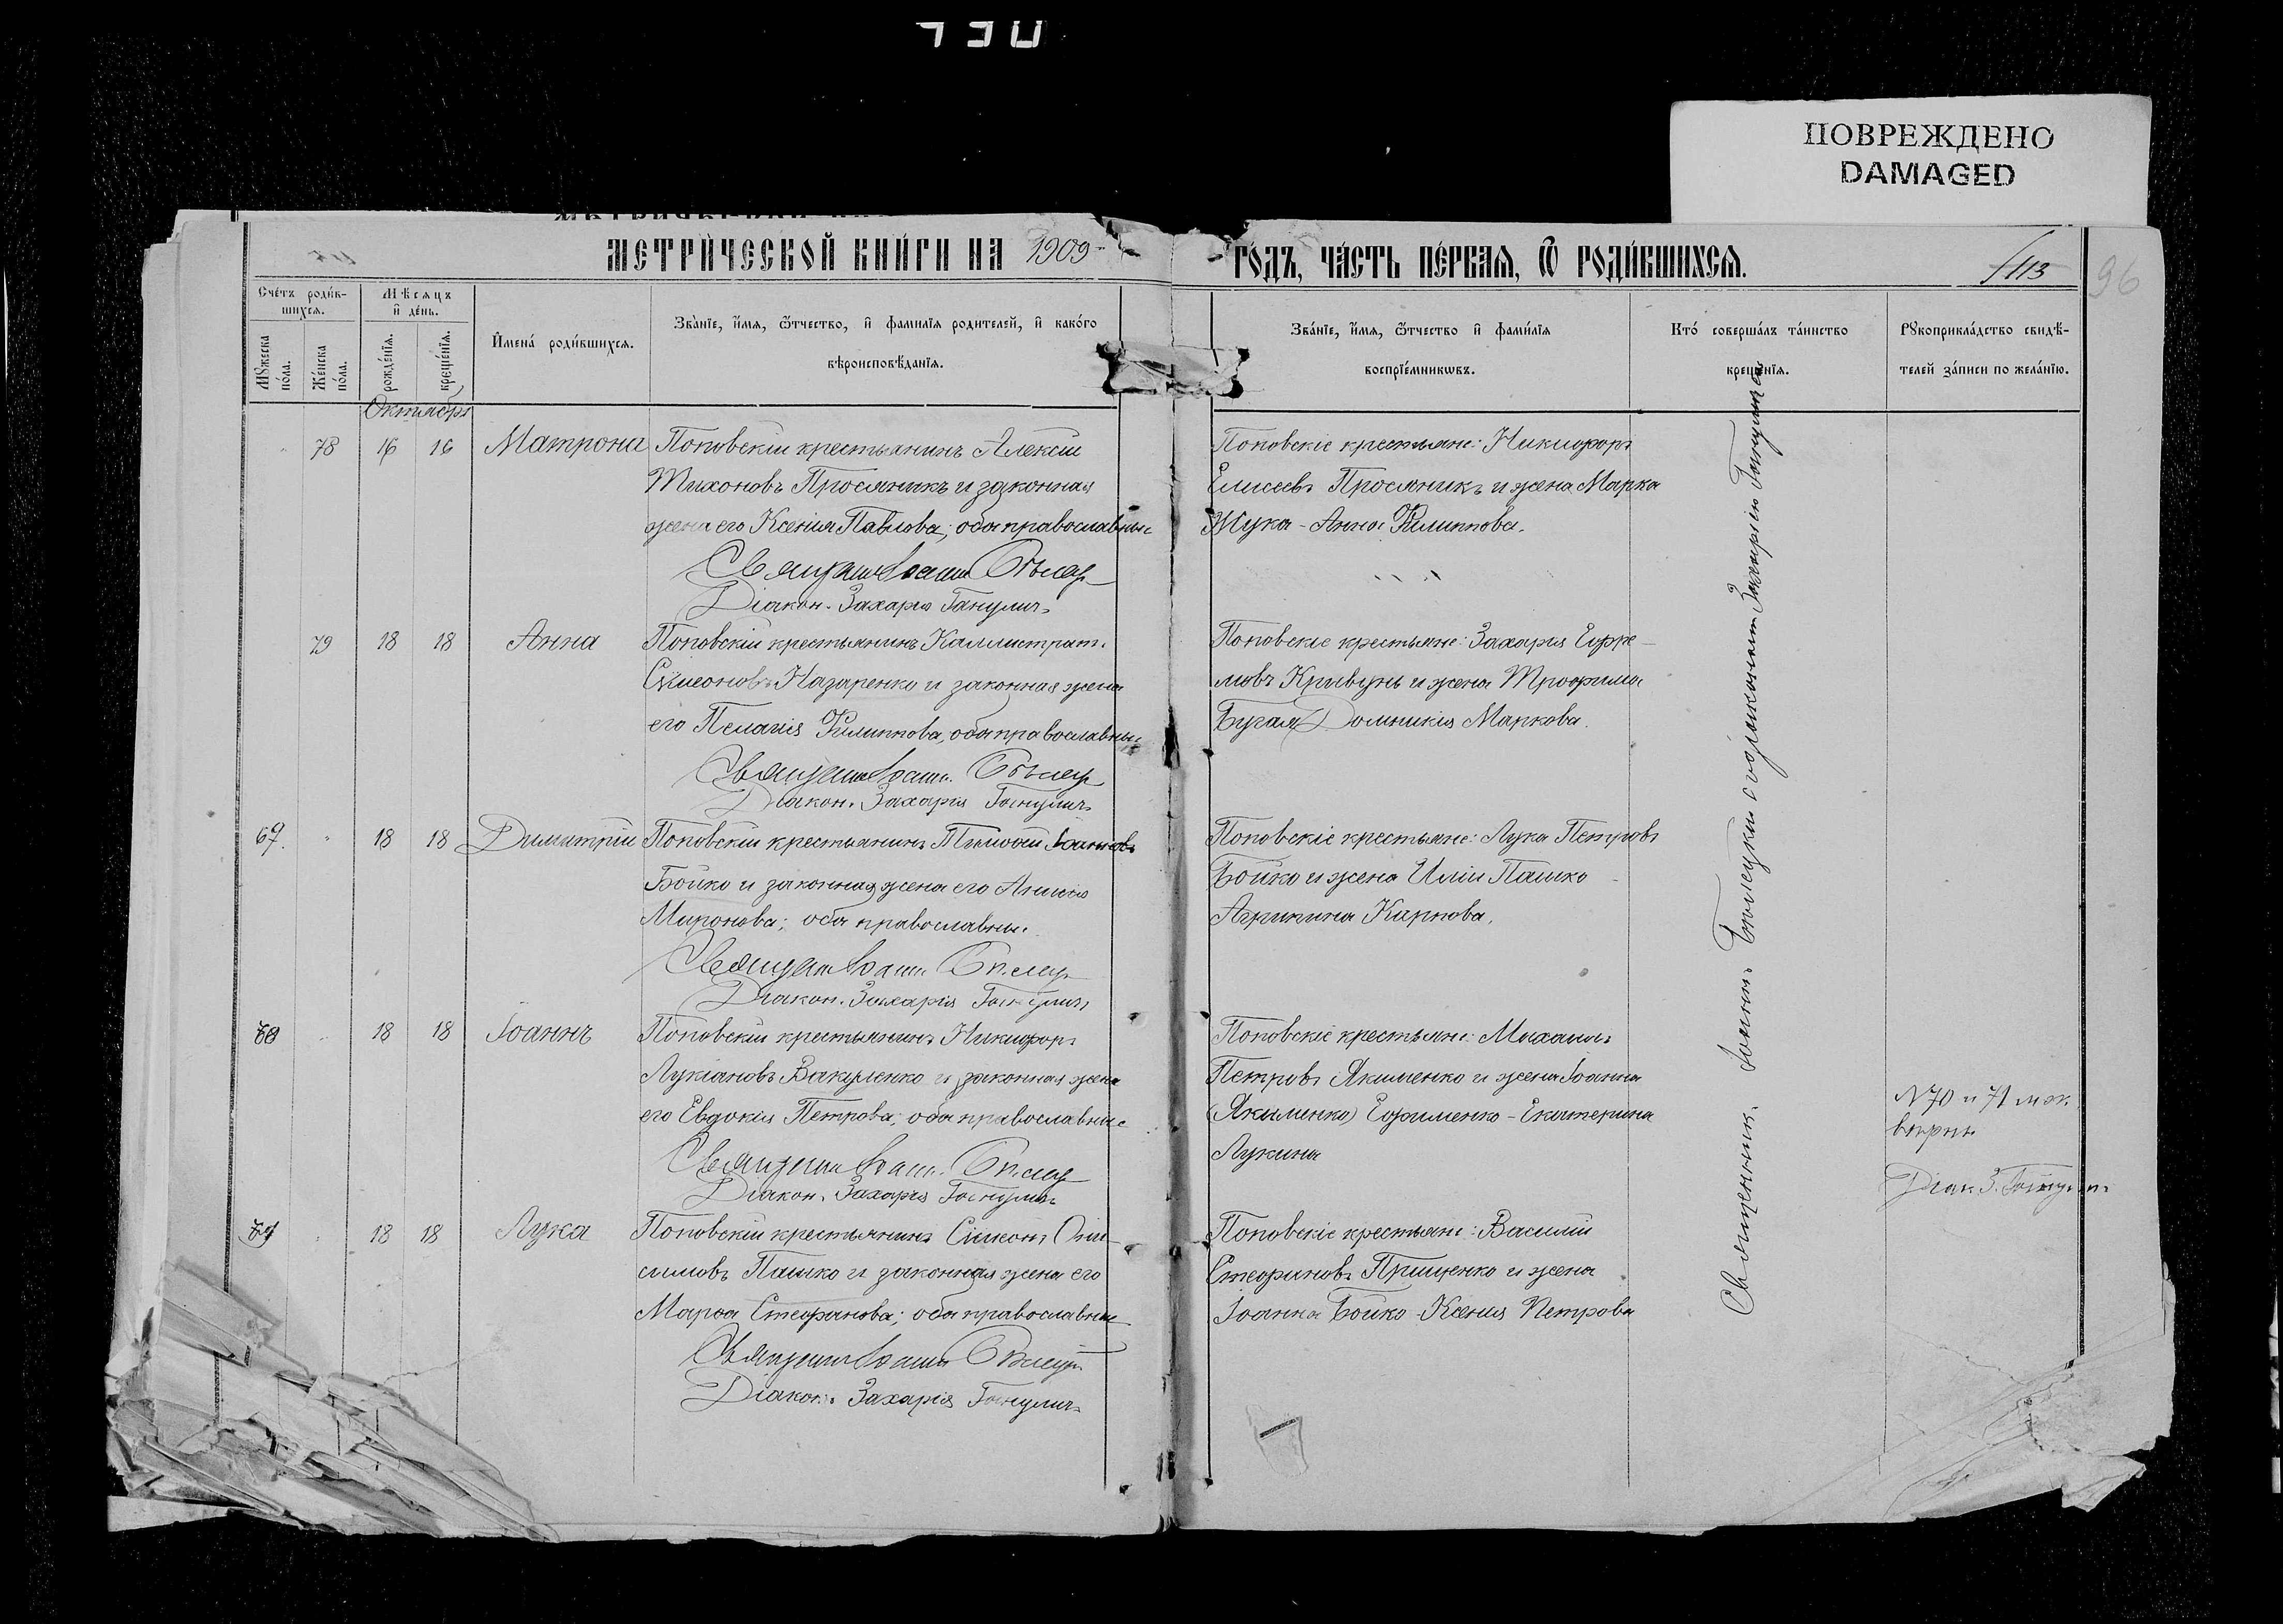 ПОВРЕЖДЕНО
DAMAGED
МЕТРИ́ЧЕСКОЙ КНИ́ГИ НА 1909
ГО́ДЪ, ЧА́СТЬ ПЕ́РВАЯ, Ѿ РОДИ́ВШИХСЯ.
113
96
Сче́тъ роди́в-
шихся.
Мѣсяцъ
и҆ де́нь.
Мꙋ́жеска
по́ла.
Же́нска
по́ла.
рожде́нїя.
креще́нїя.
И҆мена́ роди́вшихся.
Зва́нїе, и҆́мя, ѻ҆́тчество, и҆ фами́лїя родителей, и҆ како́го
вѣроисповѣ́данїя.
Зва́нїе, и҆́мя, ѻ҆́тчество и҆ фами́лїя
воспрїе́мникωвъ.
Кто́ соверша́лъ та́инство
креще́нїя.
Рꙋкоприкла́дство свидѣ́-
телей за́писи по жела́нїю.
Октябрь
78 16 16 Матрона Поповскій крестьянинъ Алексій
Тихоновъ Просяникъ и законная
жена его Ксенія Павлова; оба православные
Діаконъ Захарія Ганулич
Поповскіе крестьяне: Никифоръ
Елисеевъ Просяникъ и жена Марка
Жука - Анна Филиппова.
79 18 18 Анна Поповскій крестьянинъ Каллистратъ
Симеоновъ Назаренко и законная жена
его Пелагія Филиппова, оба православные
Діаконъ Захарія Ганулич
Поповскіе крестьяне: Захарія Ефре-
мовъ Кривунь и жена Трофима
Бугая Домникія Маркова.
69. 18 18 Димитрій Поповскій крестьянинъ Тимоѳей Іоанновъ
Бойко и законная жена его Анна
Миронова; оба православны.
Діаконъ Захарія Ганулич
Поповскіе крестьяне: Лука Петровъ
Бойко и жена Иліи Пашко
Агрипина Карпова.
70 18 18 Іоаннъ Поповскій крестьянинъ Никифоръ
Лукіановъ Вакуленко и законная жена
его Евдокія Петрова; оба православные
Діаконъ Захарія Ганулич
Поповскіе крестьяне: Михаилъ
Петровъ Якименко и жена Іоанна
(Якименко) Ефименко - Екатерина
Лукина
N 70 и 71 м. ж.
вѣрны
Діак. З.
71 18 18 Лука Поповскій крестьянинъ Симеонъ Они-
симовъ Пашко и законная жена его
Марѳа Стефанова; оба православные
Діаконъ Захарія Ганулич
Поповскіе крестьяне: Василій
Стефановъ Прищенко и жена
Іоанна Бойко Ксенія Петрова
Священникъ Іоаннъ съ діакономъ Захаріею